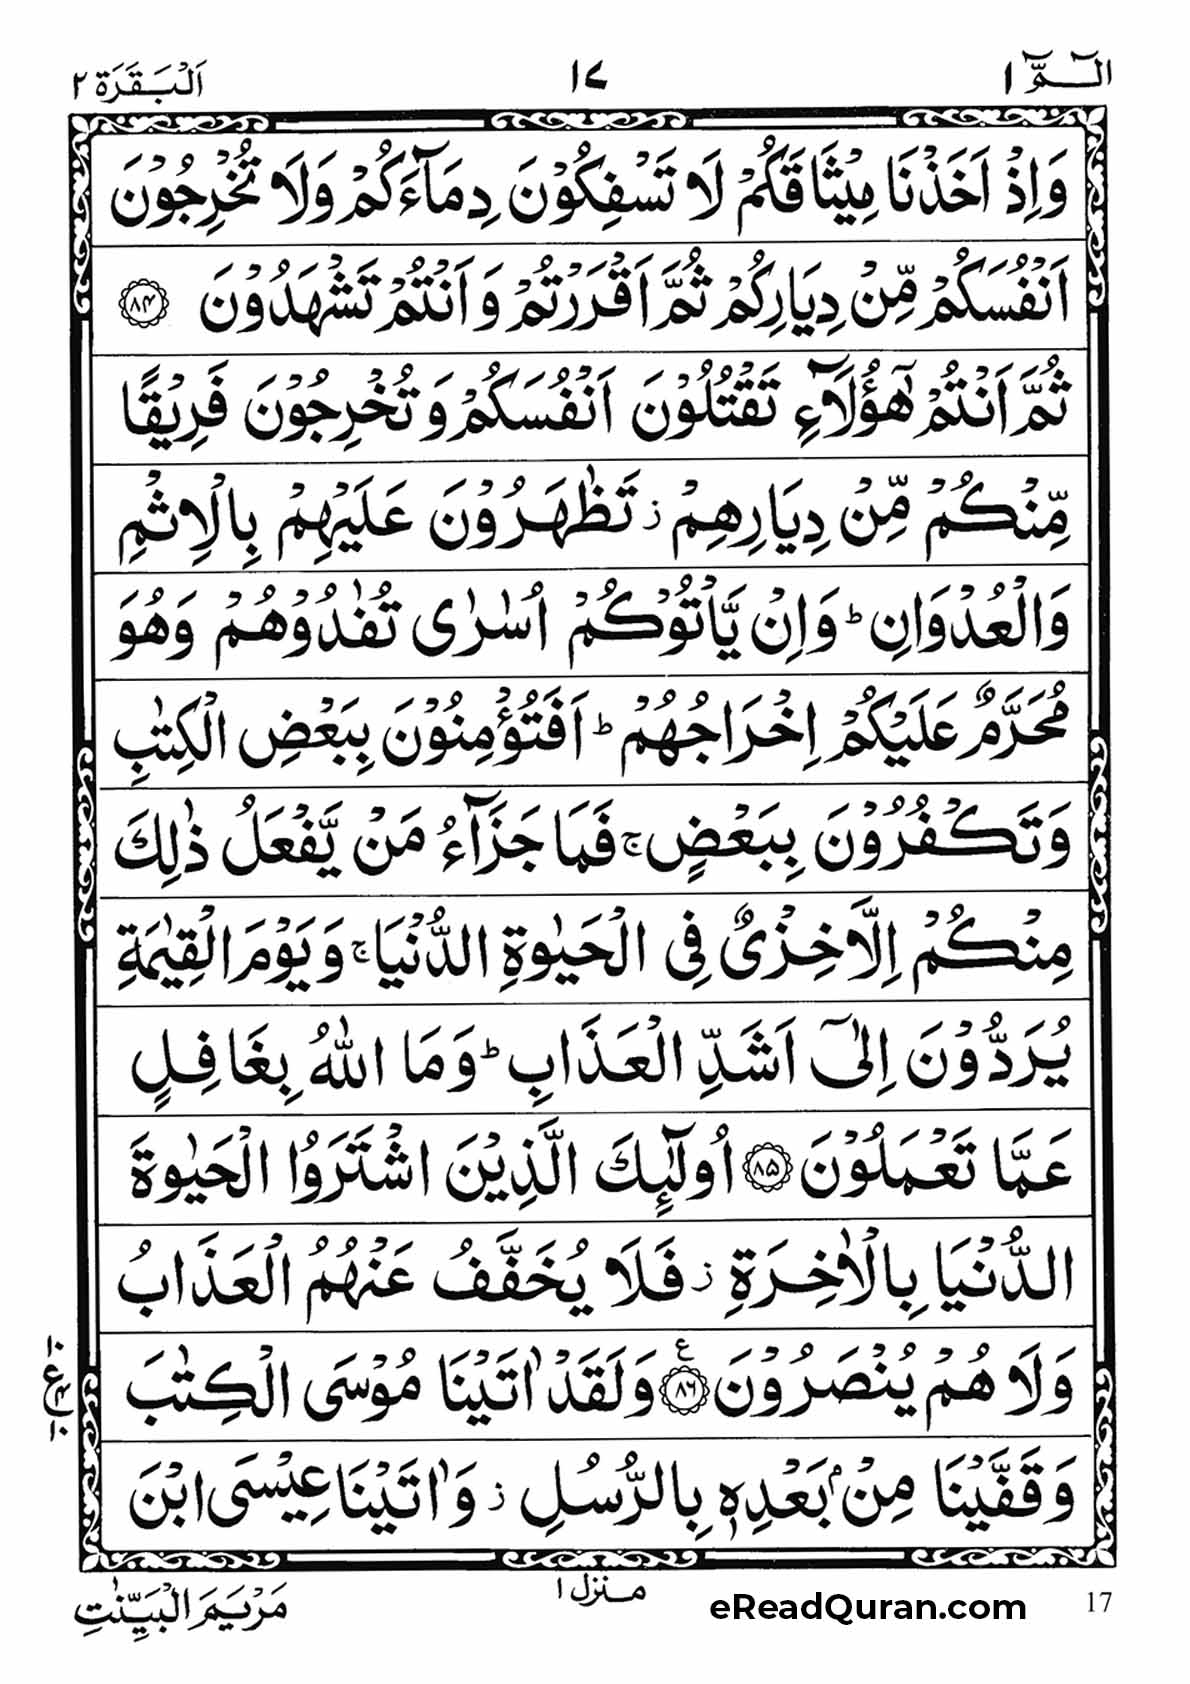 الٓـمّٓ ١ ١٧ اَلْبَقَرَة ٢
وَاِذْ اَخَذْنَا مِيْثَاقَكُمْ لَا تَسْفِكُوْنَ دِمَآءَكُمْ وَلَا تُخْرِجُوْنَ
اَنْفُسَكُمْ مِّنْ دِيَارِكُمْ ثُمَّ اَقْرَرْتُمْ وَ اَنْتُمْ تَشْهَدُوْنَ ﴿۸۴﴾
ثُمَّ اَنْتُمْ هٰٓؤُلَآءِ تَقْتُلُوْنَ اَنْفُسَكُمْ وَ تُخْرِجُوْنَ فَرِيْقًا
مِّنْكُمْ مِّنْ دِيَارِهِمْ ز تَظٰهَرُوْنَ عَلَيْهِمْ بِالْاِثْمِ
وَالْعُدْوَانِ ؕ وَاِنْ يَّاْتُوْكُمْ اُسٰرٰى تُفٰدُوْهُمْ وَهُوَ
مُحَرَّمٌ عَلَيْكُمْ اِخْرَاجُهُمْ ؕ اَفَتُؤْمِنُوْنَ بِبَعْضِ الْكِتٰبِ
وَتَكْفُرُوْنَ بِبَعْضٍ ۚ فَمَا جَزَآءُ مَنْ يَّفْعَلُ ذٰلِكَ
مِنْكُمْ اِلَّا خِزْىٌ فِى الْحَيٰوةِ الدُّنْيَا ۚ وَيَوْمَ الْقِيٰمَةِ
يُرَدُّوْنَ اِلٰٓى اَشَدِّ الْعَذَابِ ؕ وَمَا اللّٰهُ بِغَافِلٍ
عَمَّا تَعْمَلُوْنَ ﴿۸۵﴾ اُولٰٓئِكَ الَّذِيْنَ اشْتَرَوُا الْحَيٰوةَ
الدُّنْيَا بِالْاٰخِرَةِ ز فَلَا يُخَفَّفُ عَنْهُمُ الْعَذَابُ
وَلَا هُمْ يُنْصَرُوْنَ ﴿۸۶﴾ ع وَلَقَدْ اٰتَيْنَا مُوْسَى الْكِتٰبَ
وَ قَفَّيْنَا مِنْۢ بَعْدِهٖ بِالرُّسُلِ ز وَ اٰتَيْنَا عِيْسَى ابْنَ
مَرْيَمَ الْبَيِّنٰتِ
منزل ١
eReadQuran.com 17